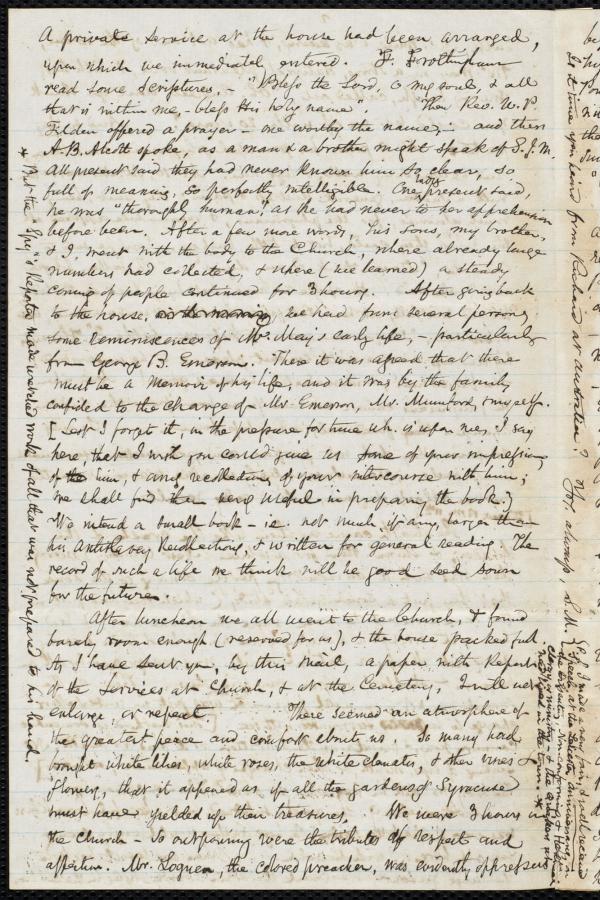 A private service at the house had been arranged,
upon which we immediately entered. F. Frothingham
read some Scriptures, - "Bless the Lord, O my soul, & all
that is within me, - bless His holy name". Then Rev. W. P.
Tilden offered a prayer - one worthy the name; - and then
A. B. Alcott spoke, as a man & a brother might speak of S. J. M.
All present said they had never known him so clear, so
full of meaning, so perfectly intelligible. One lady present said,
he was "thoroughly human", as he had never to her apprehension
before been. After a few more words, his sons, my brother,
& I, went with the body to the Church, where already large
numbers had collected, & where (we learned) a steady
coming of people continued for 3 hours. After going back
to the house, we heard from several persons
some reminiscences of Mr. May's early life, - particularly
from George B. Emerson. There it was agreed that there
must be a Memoir of his life, and it was by the family
confided to the charge of Mr Emerson, Mr. Mumford, & myself.
[Lest I forget it, in the pressure for time wh. is upon me, I say
here, that I wish you could give us some of your impressions
of him, & any recollections of your intercourse with him;
we shall find them very useful in preparing the book.]
We intend a small book - i.e. not much, if any, larger than
his Antislavery Recollections, & written for general reading. The
record of such a life we think will be good seed sown
for the future.
After luncheon we all went to the Church, & found
barely room enough (reserved for us), & the house packed full.
As I have sent you, by this mail, a paper with Report
of the Services at Church, & at the Cemetery, I will not
enlarge, or repeat. There seemed an atmosphere of
the greatest peace and comfort about us. So many had
brought white lilies, white roses, the white clematis, & other vines &
flowers, that it appeared as if all the gardens of Syracuse
must have yielded up their treasures. We were 3 hours in
the Church - so outpouring were the tributes of respect and
affection. Mr. Loguen, the colored preacher, was evidently oppressed
* But the Reporter made wretched work of all that was not prepared to his hand.